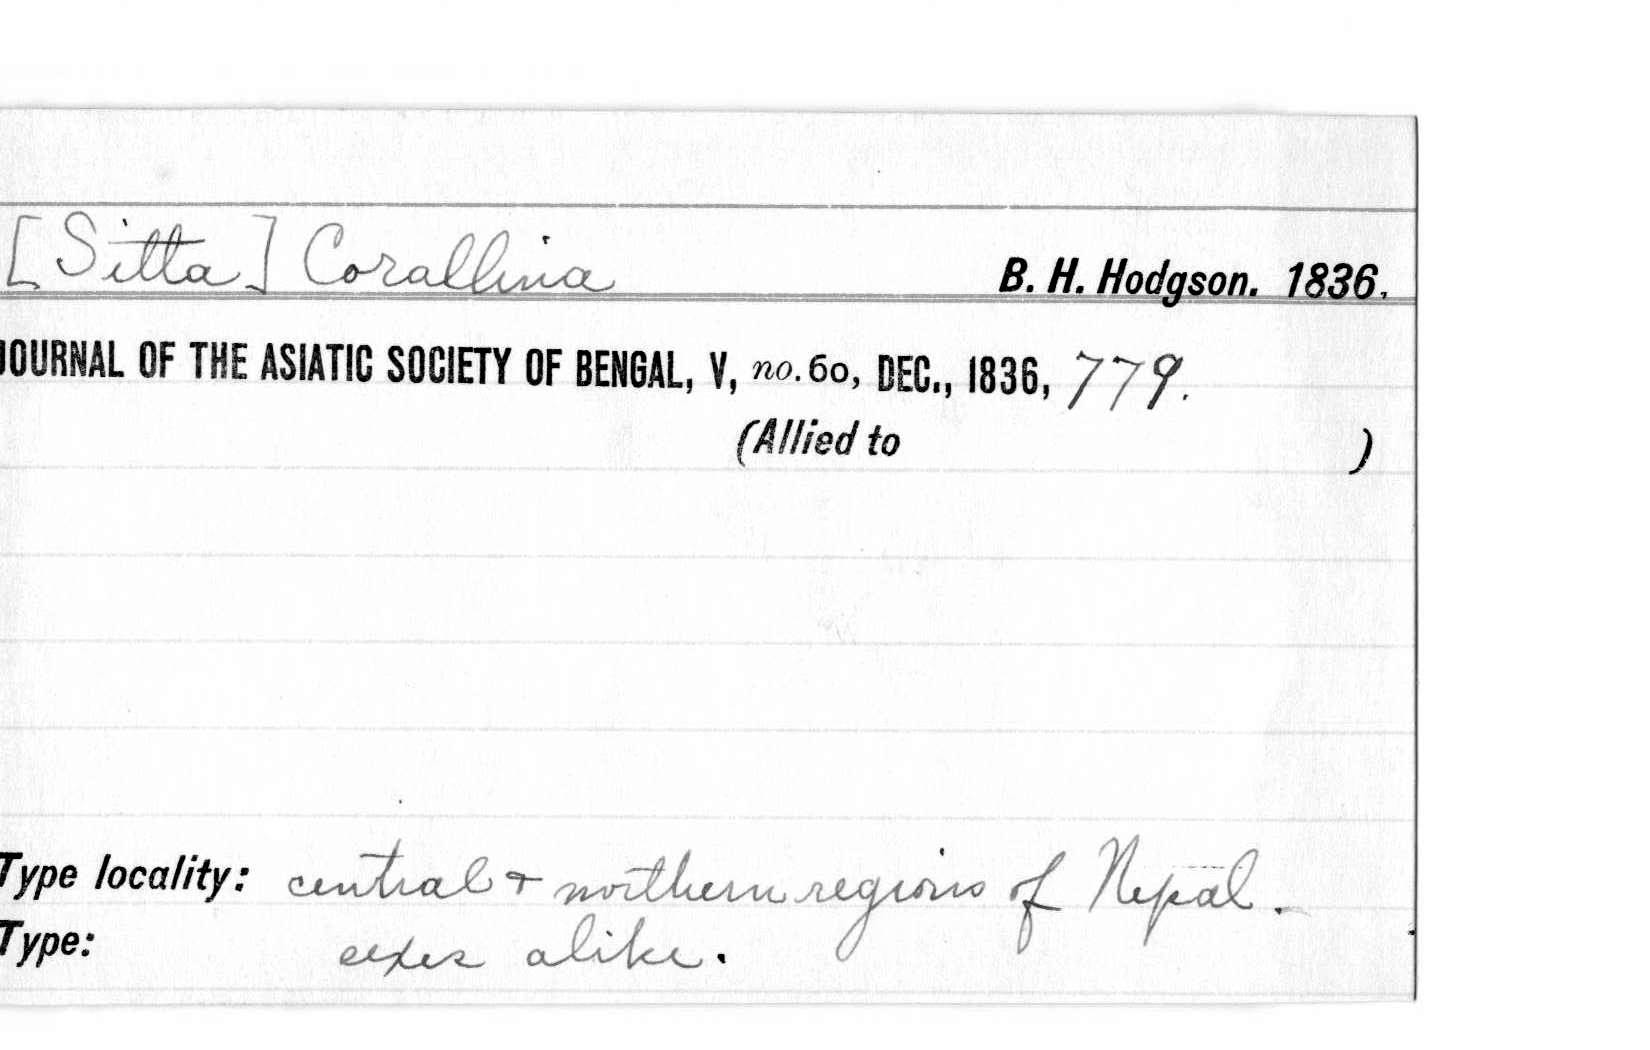 [Sitta] Corallina B. H. Hodgson. 1836.
JOURNAL OF THE ASIATIC SOCIETY OF BENGAL, V, no. 60, DEC., 1836, 779.
(Allied to )
Type locality: central + northern regions of Nepal.
Type: sexes alike.